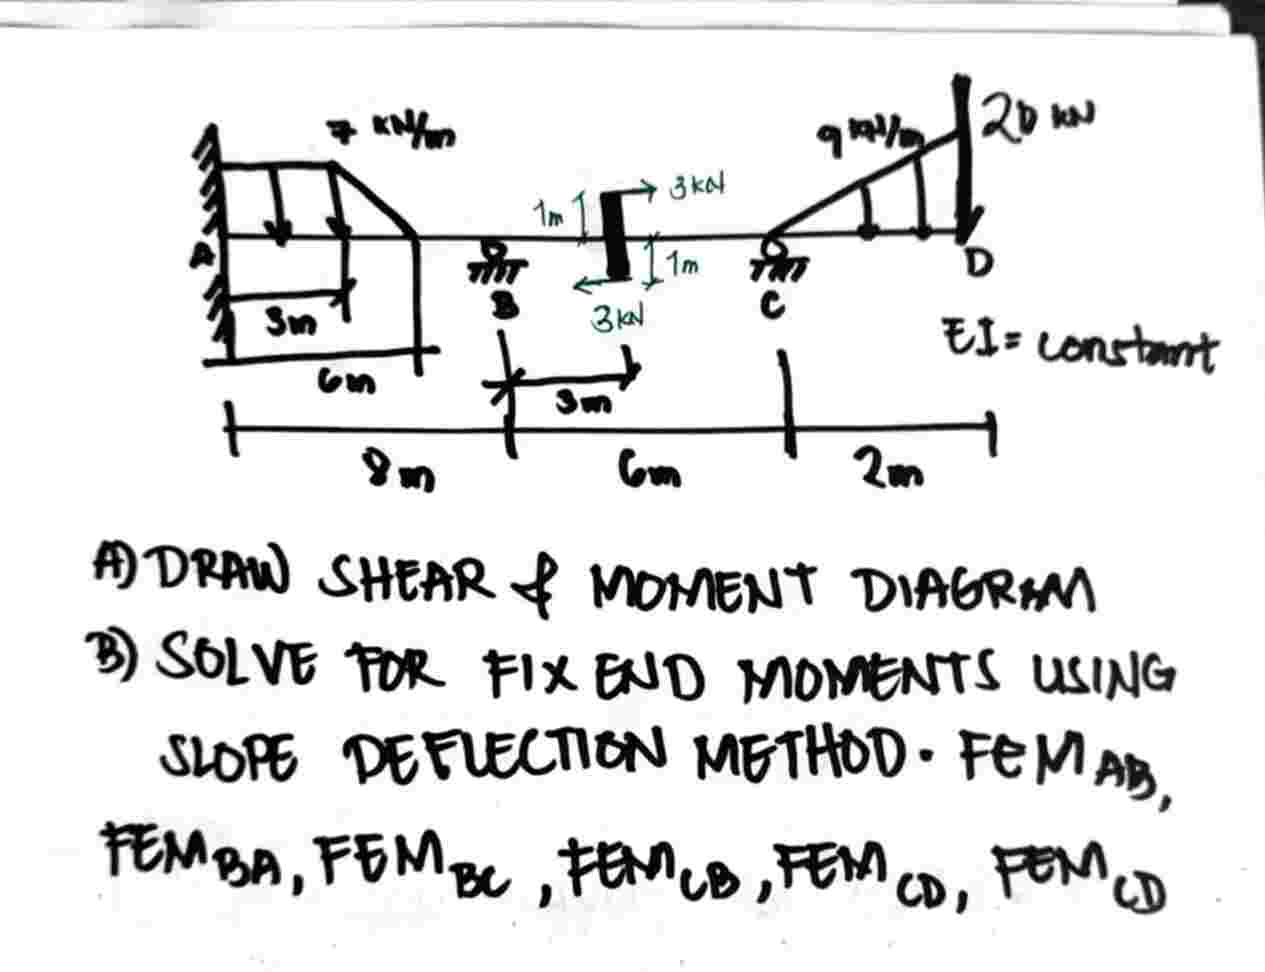 7 KN/m
9 KN/m
20 KN
1m
3KN
A
B
1m
C
D
3m
3KN
EI = constant
6m
3m
8m
6m
2m
A) DRAW SHEAR & MOMENT DIAGRAM
B) SOLVE FOR FIX END MOMENTS USING
SLOPE DEFLECTION METHOD. FEM AB,
FEM BA, FEM BC, FEM CB, FEM CD, FEM CD